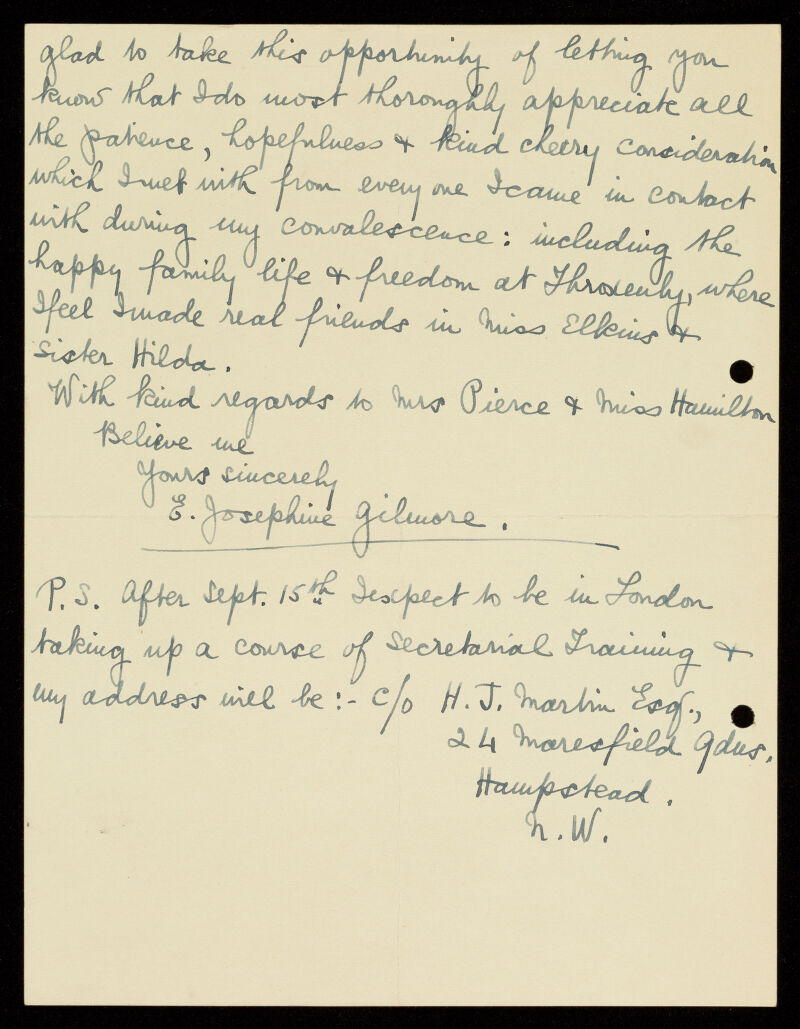 glad to take this opportunity of letting you
know that I do most thoroughly appreciate all
the patience, hopefulness & kind cheery consideration
which I met with from every one I came in contact
with during my convalescence: including the
happy family life & freedom at Throxenby, where
I feel I made real friends in Miss Elkins &
Sister Hilda.
With kind regards to Mrs Pierce & Miss Hamilton
Believe me
Yours sincerely
E. Josephine Gilmore.
P.S. After Sept. 15th I expect to be in London
taking up a course of Secretarial Training &
my address will be:- c/o H. J. Martin Esq.,
24 Maresfield Gdns.
Hampstead.
N.W.